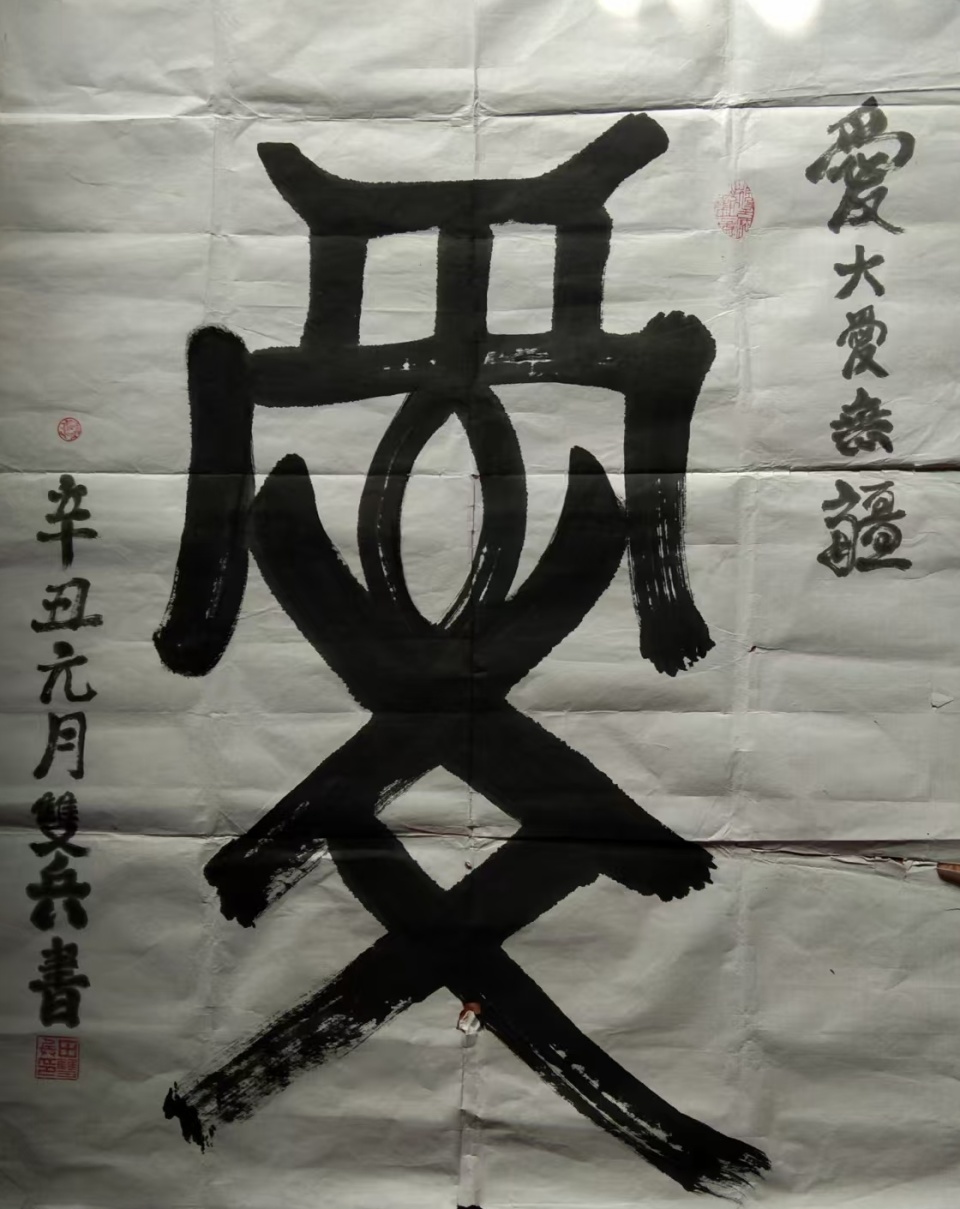 愛大愛無疆
愛
辛丑元月雙兵書